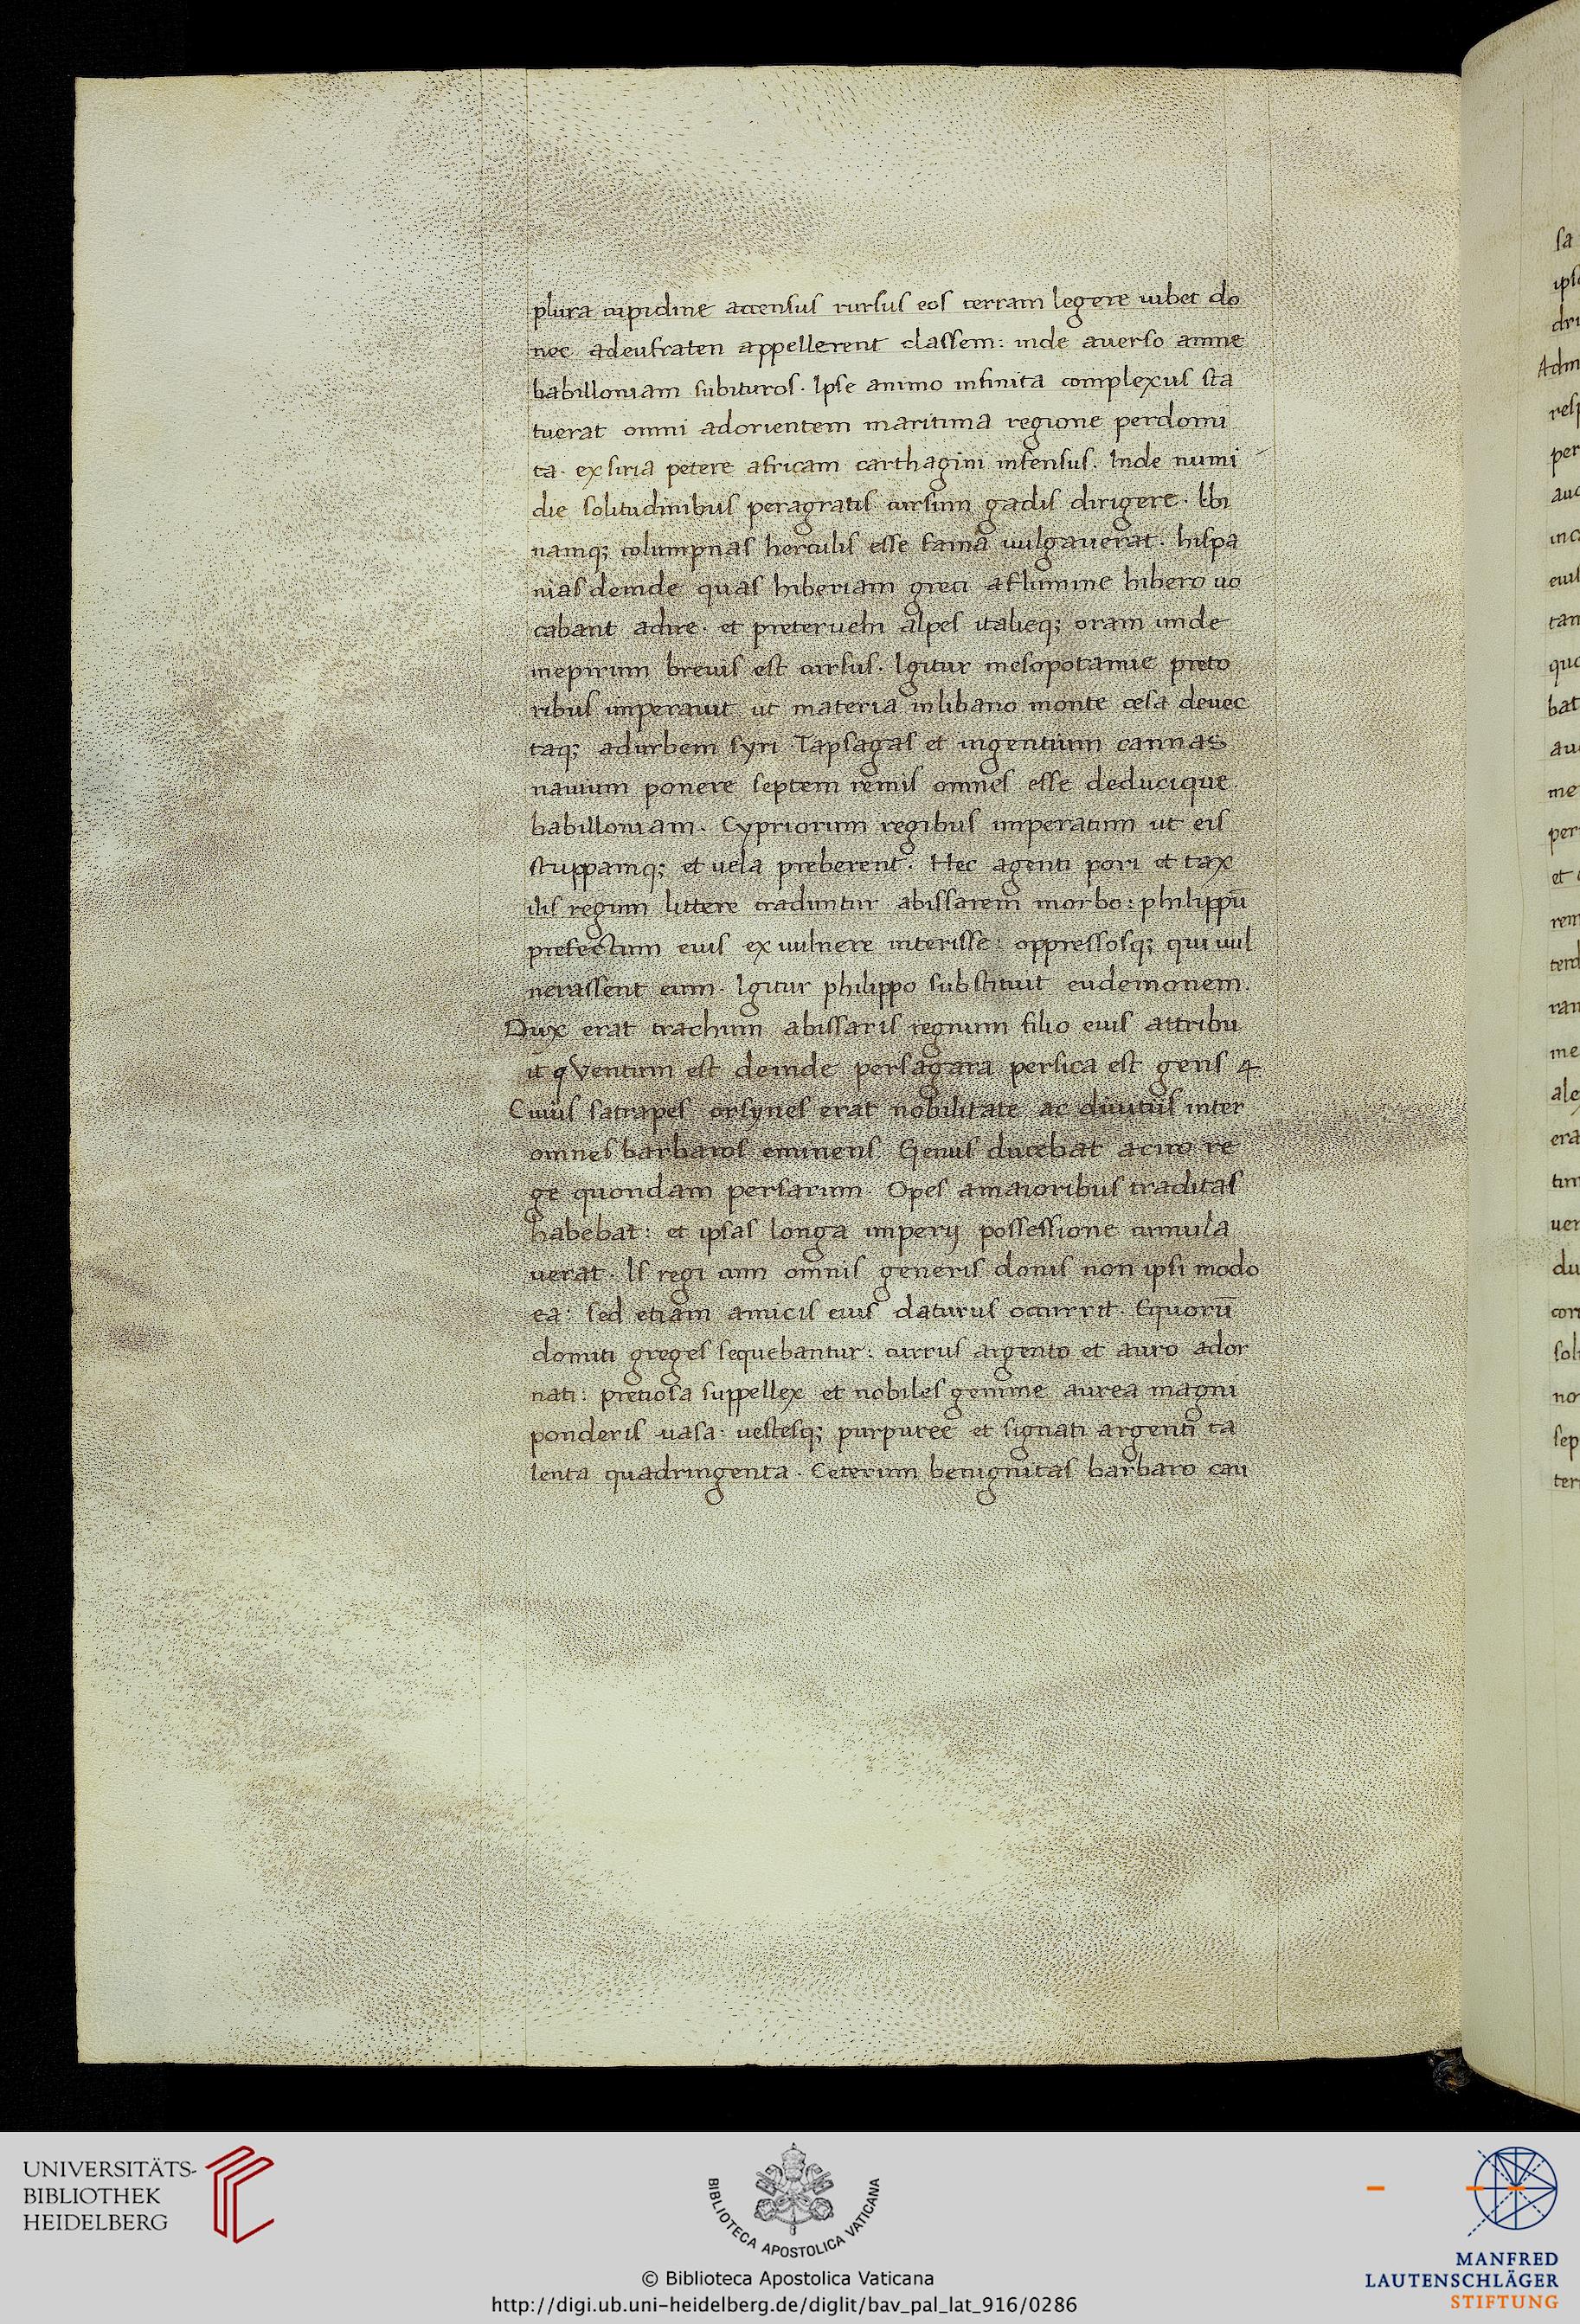 plura cupidine accensus rursus eos terram legere iubet do
nec adeufraten appellerent classem: inde auerso amne
babilloniam subituros. Ipse animo infinita complexus sta
tuerat omni adorientem maritima regione perdomi
ta. ex siria petere africam carthagini infensus. Inde numi
die solitudinibus peragratis cursum gadis dirigere. Ubi
namq; columpnas herculis esse fama uulgauerat. hispa
nias deinde quas hiberiam greci aflumine hibero uo
cabant adire. et preteruehi alpes italieq; oram unde
inepirum breuis est cursus. Igitur mesopotamie preto
ribus imperauit ut materia inlibano monte cesa deuec
taq; adurbem syri Tapsagas et ingentium carinas
nauium ponere septem remis omnes esse deducique
babilloniam. Cypriorum regibus imperatum ut eis
stuppamq; et uela preberent. Hec agenti pori et tax
ilis regum littere traduntur abissarem morbo: philippū
prefectum eius ex uulnere interisse: oppressosq; qui uul
nerassent eum. Igitur philippo substituit eudemonem.
Dux erat trachum abissaris regnum filio eius attribu
it Ventum est deinde persagara persica est gens
Cuius satrapes orsynes erat nobilitate ac diuitiis inter
omnes barbaros eminens Genus ducebat aciro re
ge quondam persarum. Opes amaioribus traditas
habebat: et ipsas longa imperij possessione cumula
uerat. Is regi cum omnis generis donis non ipsi modo
ea: sed etiam amicis eius daturus occurrit. Equorū
domiti greges sequebantur: currus argento et auro ador
nati: pretiosa suppellex et nobiles gemme aurea magni
ponderis uasa: uestesq; purpuree et signati argenti ta
lenta quadringenta. Ceterum benignitas barbaro cau
sa
ips
dri
Adm
res
per
auc
inc
eius
tan
quo
bat
au
me
per
et
rem
terd
ran
me
ale
era
tim
uer
du
con
soli
no
sep
ter
UNIVERSITÄTS-
BIBLIOTHEK
HEIDELBERG
BIBLIOTECA APOSTOLICA VATICANA
© Biblioteca Apostolica Vaticana
http://digi.ub.uni-heidelberg.de/diglit/bav_pal_lat_916/0286
MANFRED
LAUTENSCHLÄGER
STIFTUNG